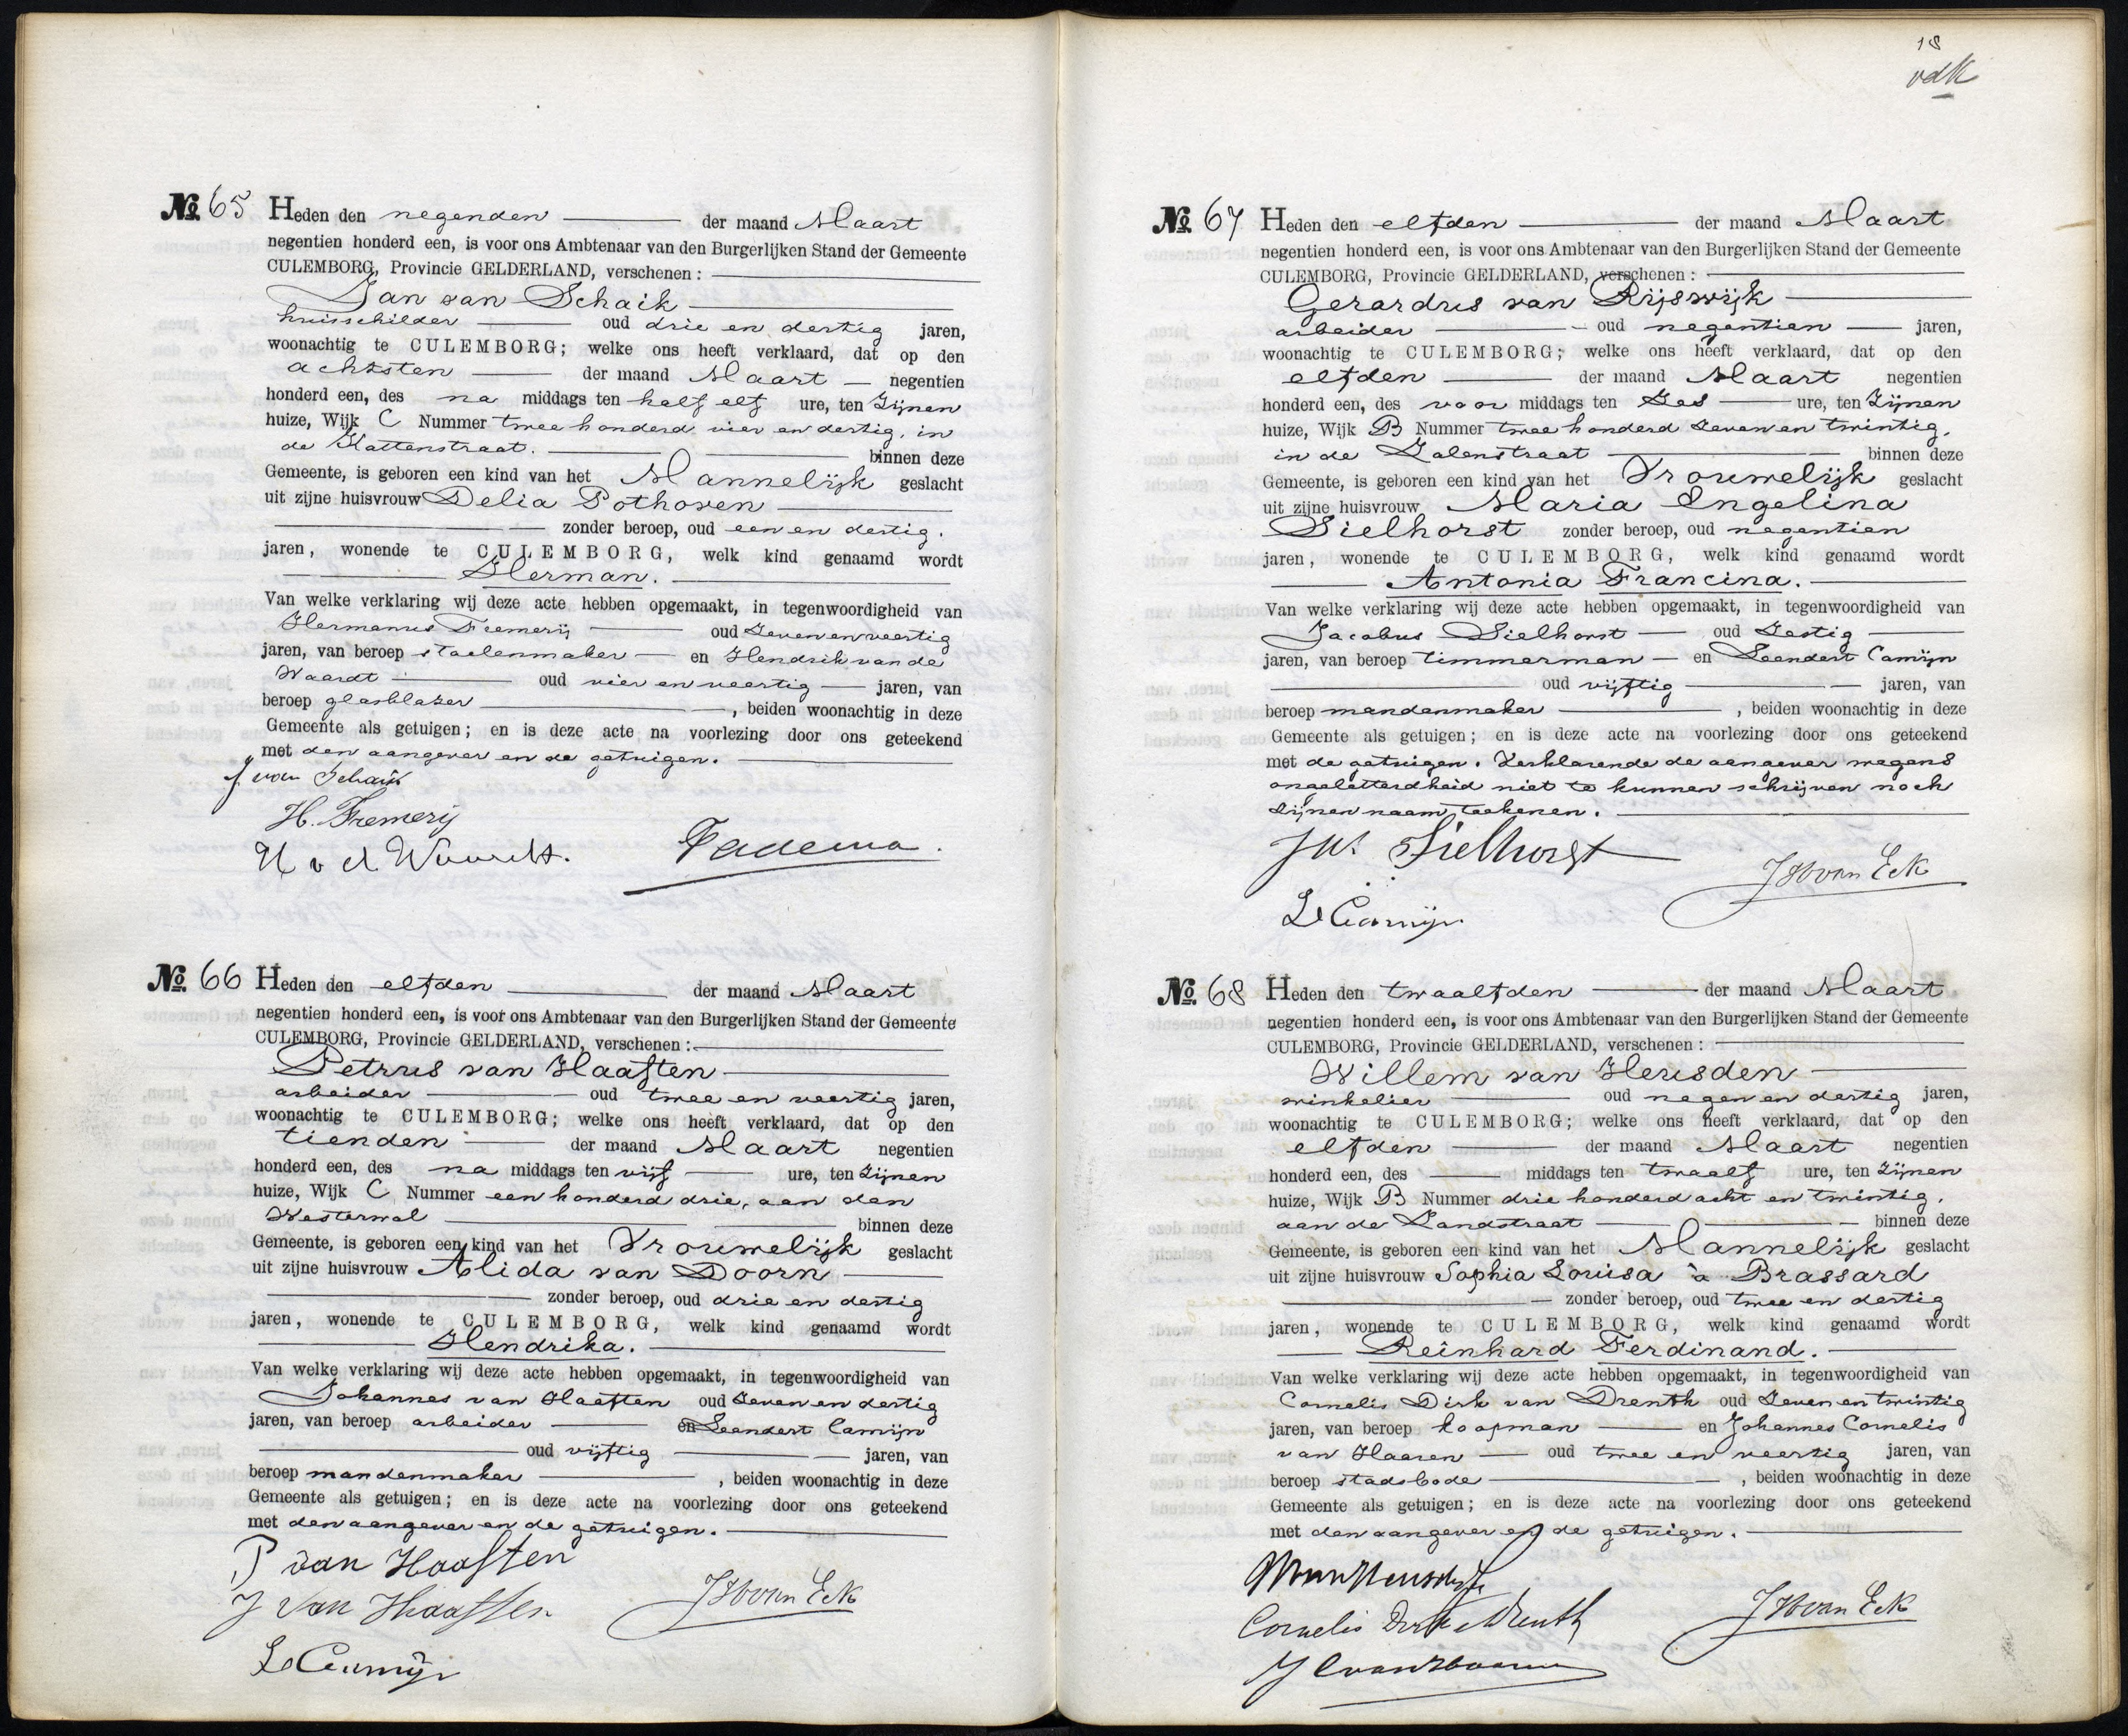 No. 65 Heden den negenden der maand Maart
negentien honderd een, is voor ons Ambtenaar van den Burgerlijken Stand der Gemeente
CULEMBORG, Provincie GELDERLAND, verschenen :
Jan van Schaik
huisschilder oud drie en dertig jaren,
woonachtig te CULEMBORG; welke ons heeft verklaard, dat op den
achtsten der maand Maart negentien
honderd een, des na middags ten half elf ure, ten Zijnen
huize, Wijk C Nummer twee honderd vier en dertig, in
de Kattenstraat. binnen deze
Gemeente, is geboren een kind van het Mannelijk geslacht
uit zijne huisvrouw Delia Pothoven
zonder beroep, oud een en dertig.
jaren, wonende te CULEMBORG, welk kind genaamd wordt
Herman.
Van welke verklaring wij deze acte hebben opgemaakt, in tegenwoordigheid van
Hermanus Fremerij oud Zeven en veertig
jaren, van beroep stoelenmaker en Hendrik van de
Waardt oud vier en veertig jaren, van
beroep glasblazer , beiden woonachtig in deze
Gemeente als getuigen; en is deze acte na voorlezing door ons geteekend
met den aangever en de getuigen.
J van Schaik
H. Fremerij
H v d Waardt. Tadema.
No. 66 Heden den elfden der maand Maart
negentien honderd een, is voor ons Ambtenaar van den Burgerlijken Stand der Gemeente
CULEMBORG, Provincie GELDERLAND, verschenen :
Petrus van Haaften
arbeider oud twee en veertig jaren,
woonachtig te CULEMBORG; welke ons heeft verklaard, dat op den
tienden der maand Maart negentien
honderd een, des na middags ten vijf ure, ten Zijnen
huize, Wijk C Nummer een honderd drie, aan den
Westerwal binnen deze
Gemeente, is geboren een kind van het Vrouwelijk geslacht
uit zijne huisvrouw Alida van Doorn
zonder beroep, oud drie en dertig
jaren, wonende te CULEMBORG, welk kind genaamd wordt
Hendrika.
Van welke verklaring wij deze acte hebben opgemaakt, in tegenwoordigheid van
Johannes van Haaften oud Zeven en dertig
jaren, van beroep arbeider en Leendert Camijn
oud vijftig jaren, van
beroep mandenmaker , beiden woonachtig in deze
Gemeente als getuigen; en is deze acte na voorlezing door ons geteekend
met den aangever en de getuigen.
P van Haaften
J van Haaften J H van Eck
L Camijn
18
vdK
No. 67 Heden den elfden der maand Maart
negentien honderd een, is voor ons Ambtenaar van den Burgerlijken Stand der Gemeente
CULEMBORG, Provincie GELDERLAND, verschenen :
Gerardus van Rijswijk
arbeider oud negentien jaren,
woonachtig te CULEMBORG; welke ons heeft verklaard, dat op den
elfden der maand Maart negentien
honderd een, des voor middags ten Zes ure, ten Zijnen
huize, Wijk B Nummer twee honderd Zeven en twintig,
in de Zalenstraat binnen deze
Gemeente, is geboren een kind van het Vrouwelijk geslacht
uit zijne huisvrouw Maria Engelina
Sielhorst zonder beroep, oud negentien
jaren, wonende te CULEMBORG, welk kind genaamd wordt
Antonia Francina.
Van welke verklaring wij deze acte hebben opgemaakt, in tegenwoordigheid van
Jacobus Sielhorst oud Zestig
jaren, van beroep timmerman en Leendert Camijn
oud vijftig jaren, van
beroep mandenmaker , beiden woonachtig in deze
Gemeente als getuigen; en is deze acte na voorlezing door ons geteekend
met de getuigen. Verklarende de aangever wegens
ongeletterdheid niet te kunnen schrijven noch
zijnen naam teekenen.
Jac Sielhorst J H van Eck
L Camijn
No. 68 Heden den twaalfden der maand Maart
negentien honderd een, is voor ons Ambtenaar van den Burgerlijken Stand der Gemeente
CULEMBORG, Provincie GELDERLAND, verschenen :
Willem van Heusden
winkelier oud negen en dertig jaren,
woonachtig te CULEMBORG; welke ons heeft verklaard, dat op den
elfden der maand Maart negentien
honderd een, des middags ten twaalf ure, ten Zijnen
huize, Wijk B Nummer drie honderd acht en twintig,
aan de Zandstraat binnen deze
Gemeente, is geboren een kind van het Mannelijk geslacht
uit zijne huisvrouw Sophia Louisa à Brassard
zonder beroep, oud twee en dertig
jaren, wonende te CULEMBORG, welk kind genaamd wordt
Reinhard Ferdinand.
Van welke verklaring wij deze acte hebben opgemaakt, in tegenwoordigheid van
Cornelis Dirk van Drenth oud Zeven en twintig
jaren, van beroep koopman en Johannes Cornelis
van Haaren oud twee en veertig jaren, van
beroep stadsbode , beiden woonachtig in deze
Gemeente als getuigen; en is deze acte na voorlezing door ons geteekend
met den aangever en de getuigen.
W van Heusden
Cornelis Dirk v Drenth J H van Eck
J C van Haaren